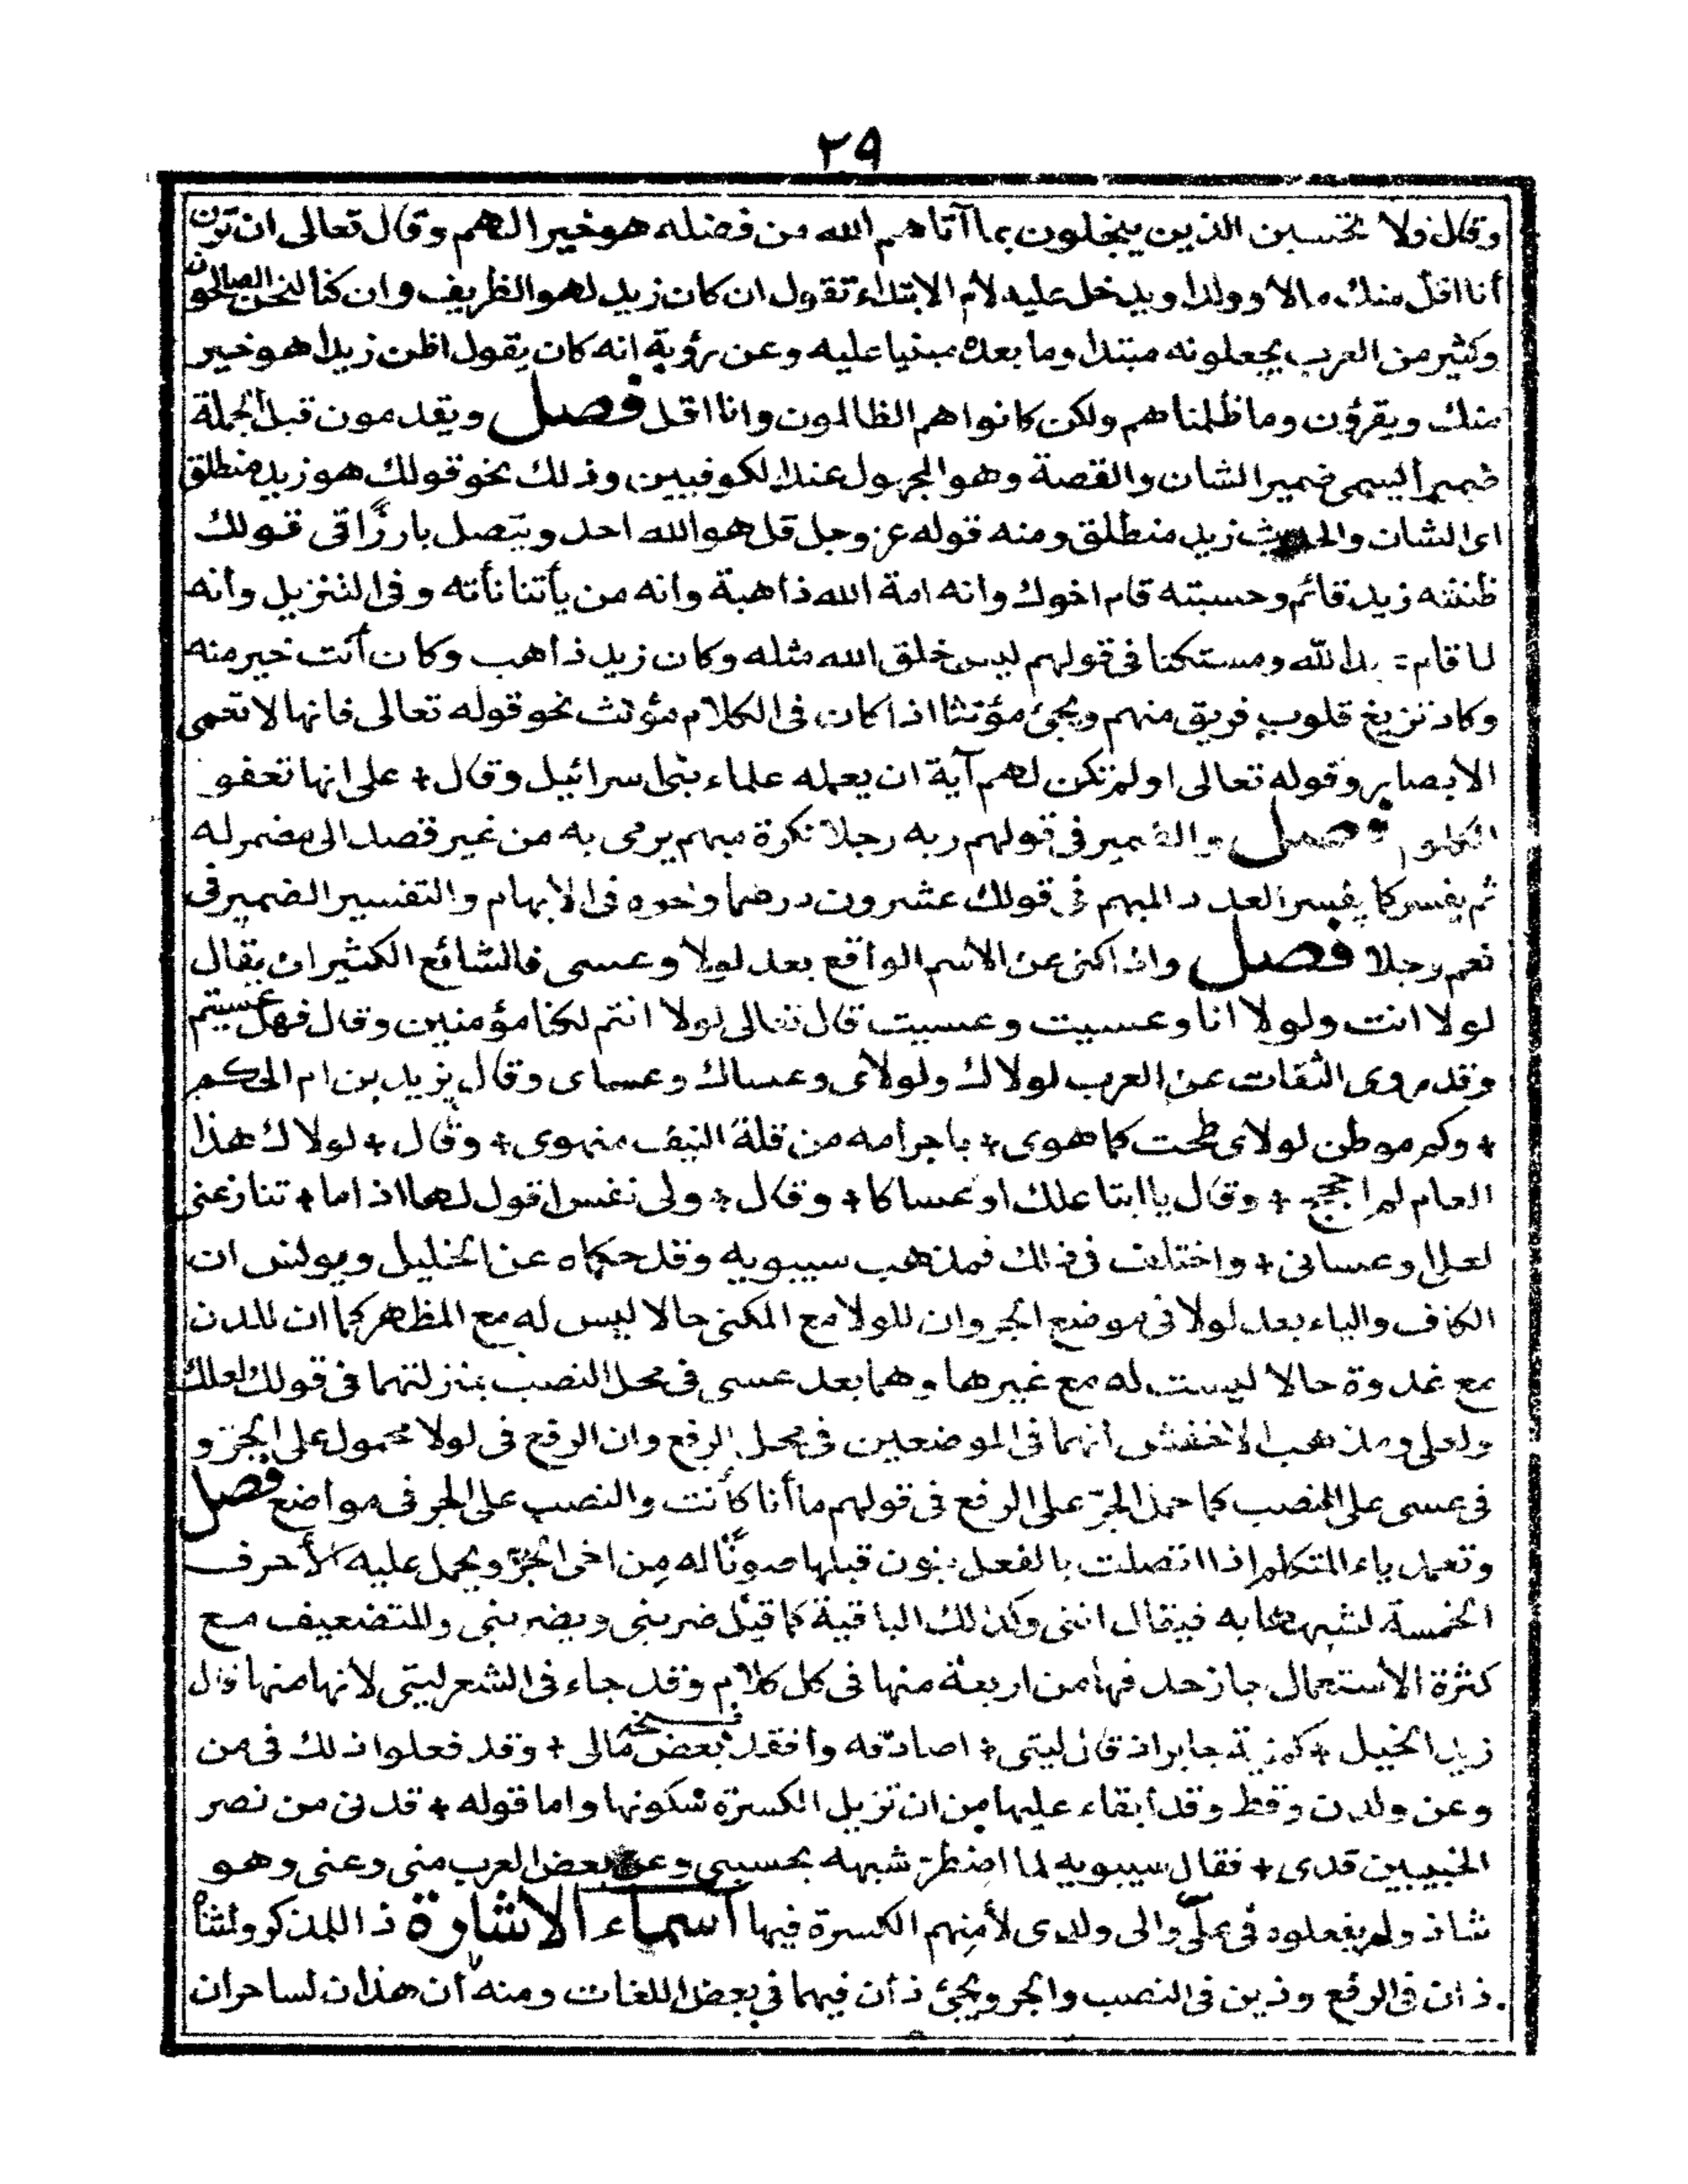 ٢٩
وقال ولا تحسبن الذين يبخلون بما آتاهم الله من فضله هو خيرا لهم وقال تعالى ان ترن
أنا اقل منك مالا وولدا ويدخل عليه لام الابتداء تقول ان كان زيد لهو الظريف وان كنا لنحن الصالحون
وكثير من العرب يجعلونه مبتدا وما بعده مبنيا عليه وعن رؤبة انه كان يقول اظن زيدا هو خير
منك ويقرؤن وما ظلمناهم ولكن كانوا هم الظالمون وانا اقل فصل ويقدمون قبل الجملة
ضميرا يسمى ضمير الشان والقصة وهو المجهول عند الكوفيين وذلك نحو قولك هو زيد منطلق
اى الشان والحديث زيد منطلق ومنه قوله عز وجل قل هو الله احد ويتصل بارزًا فى قولك
ظننته زيد قائم وحسبته قام اخوك وانه امة الله ذاهبة وانه من يأتنا نأته وفى التنزيل وأنه
لما قام عبد الله ومستكنا فى قولهم ليس خلق الله مثله وكان زيد ذاهب وكان أنت خير منه
وكاد تزيغ قلوب فريق منهم ويجئ مؤنثا اذا كان فى الكلام مؤنث نحو قوله تعالى فانها لا تعمى
الابصار وقوله تعالى اولم تكن لهم آية ان يعلمه علماء بنى اسرائيل وقال + على انها تعفو
الكلوم فصل والضمير فى قولهم ربه رجلا نكرة مبهم يرمى به من غير قصد الى مضمر له
ثم يفسر كما يفسر العدد المبهم فى قولك عشرون درهما ونحوه فى الابهام والتفسير الضمير فى
نعم رجلا فصل واذا كنى عن الاسم الواقع بعد لولا وعسى فالشائع الكثير ان يقال
لولا انت ولولا انا وعسيت وعسيت قال تعالى لولا انتم لكنا مؤمنين وقال فهل عسيتم
وقد روى الثقات عن العرب لولاك ولولاى وعساك وعساى وقال يزيد بن ام الحكم
+ وكم موطن لولاى طحت كما هوى + باجرامه من قلة النيف منهوى + وقال + لولاك هذا
العام لم احجج + وقال يا ابتا علك او عساكا + وقال + ولى نفس اقول لها اذا ما + تنازعنى
لعلى او عسانى + واختلف فى ذلك فمذهب سيبويه وقد حكاه عن الخليل ويونس ان
الكاف والياء بعد لولا فى موضع الجر وان للولا مع المكنى حالا ليس له مع المظهر كما ان للدن
مع غدوة حالا ليست له مع غيرها وهما بعد عسى فى محل النصب بمنزلتهما فى قولك لعلك
ولعلى ومذهب الاخفش انهما فى الموضعين فى محل الرفع وان الرفع فى لولا محمول على الجر و
فى عسى على النصب كما حمل الجرّ على الرفع فى قولهم ما أنا كأنت والنصب على الجر فى مواضع فصل
وتعمد ياء المتكلم اذا اتصلت بالفعل بنون قبلها صونًا له من اخى الجرّ ويحمل عليه الأحرف
الخمسة لشبهها به فيقال اننى وكذلك الباقية كما قيل ضربنى ويضربنى وللتضعيف مع
كثرة الاستعمال جاز حذفها من اربعة منها فى كل كلام وقد جاء فى الشعر ليتى لانها منها قال
زيد الخيل + كمنية جابر اذ قال ليتى + اصادفه وأفقد بعض مالى + وقد فعلوا ذلك فى من
وعن ولدن وقط وقد أبقاء عليها من ان تزيل الكسرة سكونها واما قوله + قدنى من نصر
الخبيبين قدى + فقال سيبويه لما اضطرّ شبهه بحسبى وعن بعض العرب منى وعنى وهو
شاذ ولم يفعلوه فى علىّ والى ولدى لأمنهم الكسرة فيها أسماء الاشارة ذا للمذكر ولمثناه
ذان فى الرفع وذين فى النصب والجر ويجئ ذأن فيهما فى بعض اللغات ومنه أن هذان لساحران